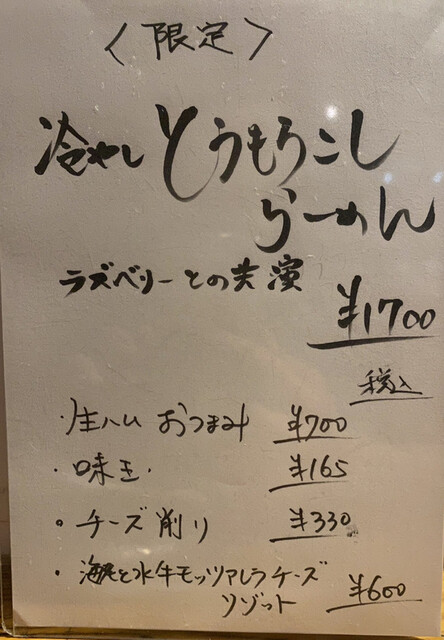 〈限定〉
冷やし とうもろこし
らーめん
ラズベリーとの共演
¥1700
税込
・生ハム おつまみ ¥700
・味玉 ¥165
・チーズ削り ¥330
・海老と水牛モッツァレラチーズ
リゾット ¥600